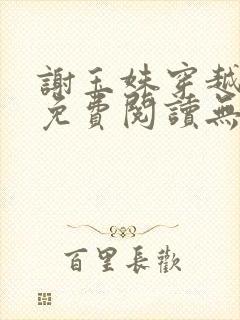 謝玉姝穿越
免費閱讀無
百里長歡